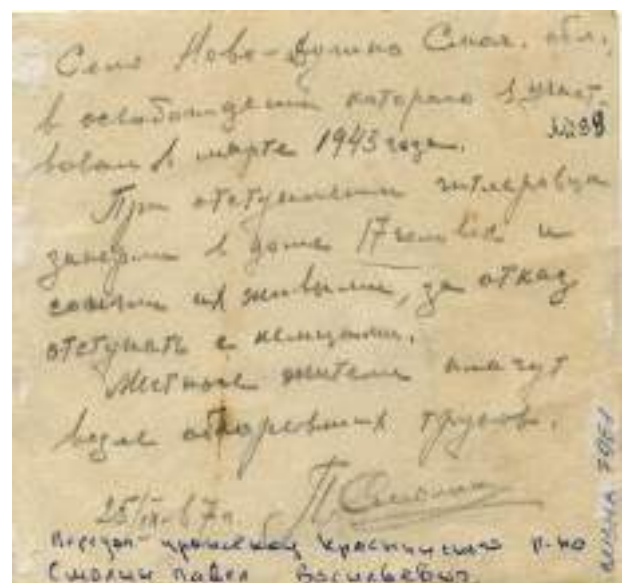 Село Ново-Дугино Смол. обл.,
в освобождении которого я участ-
№ 38
вовал в марте 1943 года.
При отступлении гитлеровцы
заперли в доме 17 человек и
сожгли их живыми, за отказ
отступать с немцами.
Местные жители плачут
возле обгоревших трупов.
25/IX-67 г. П. Смолин
Краснинского р-на
Смолин Павел Васильевич.